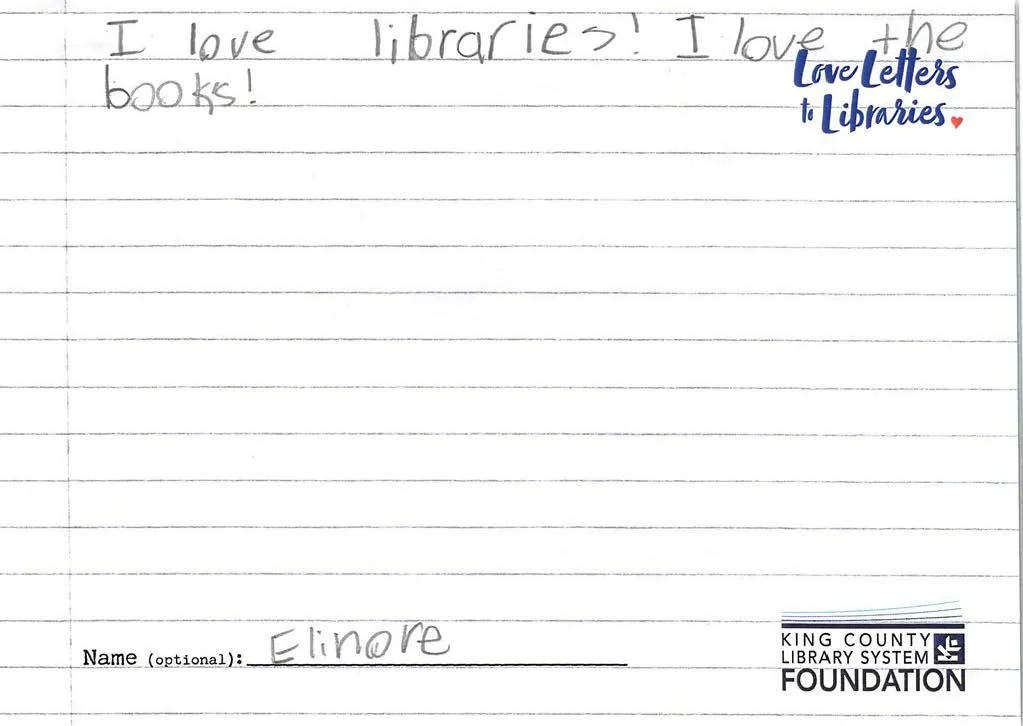 I love libraries! I love the
books!
Love Letters
to Libraries
Name (optional): Elinore
KING COUNTY
LIBRARY SYSTEM
FOUNDATION